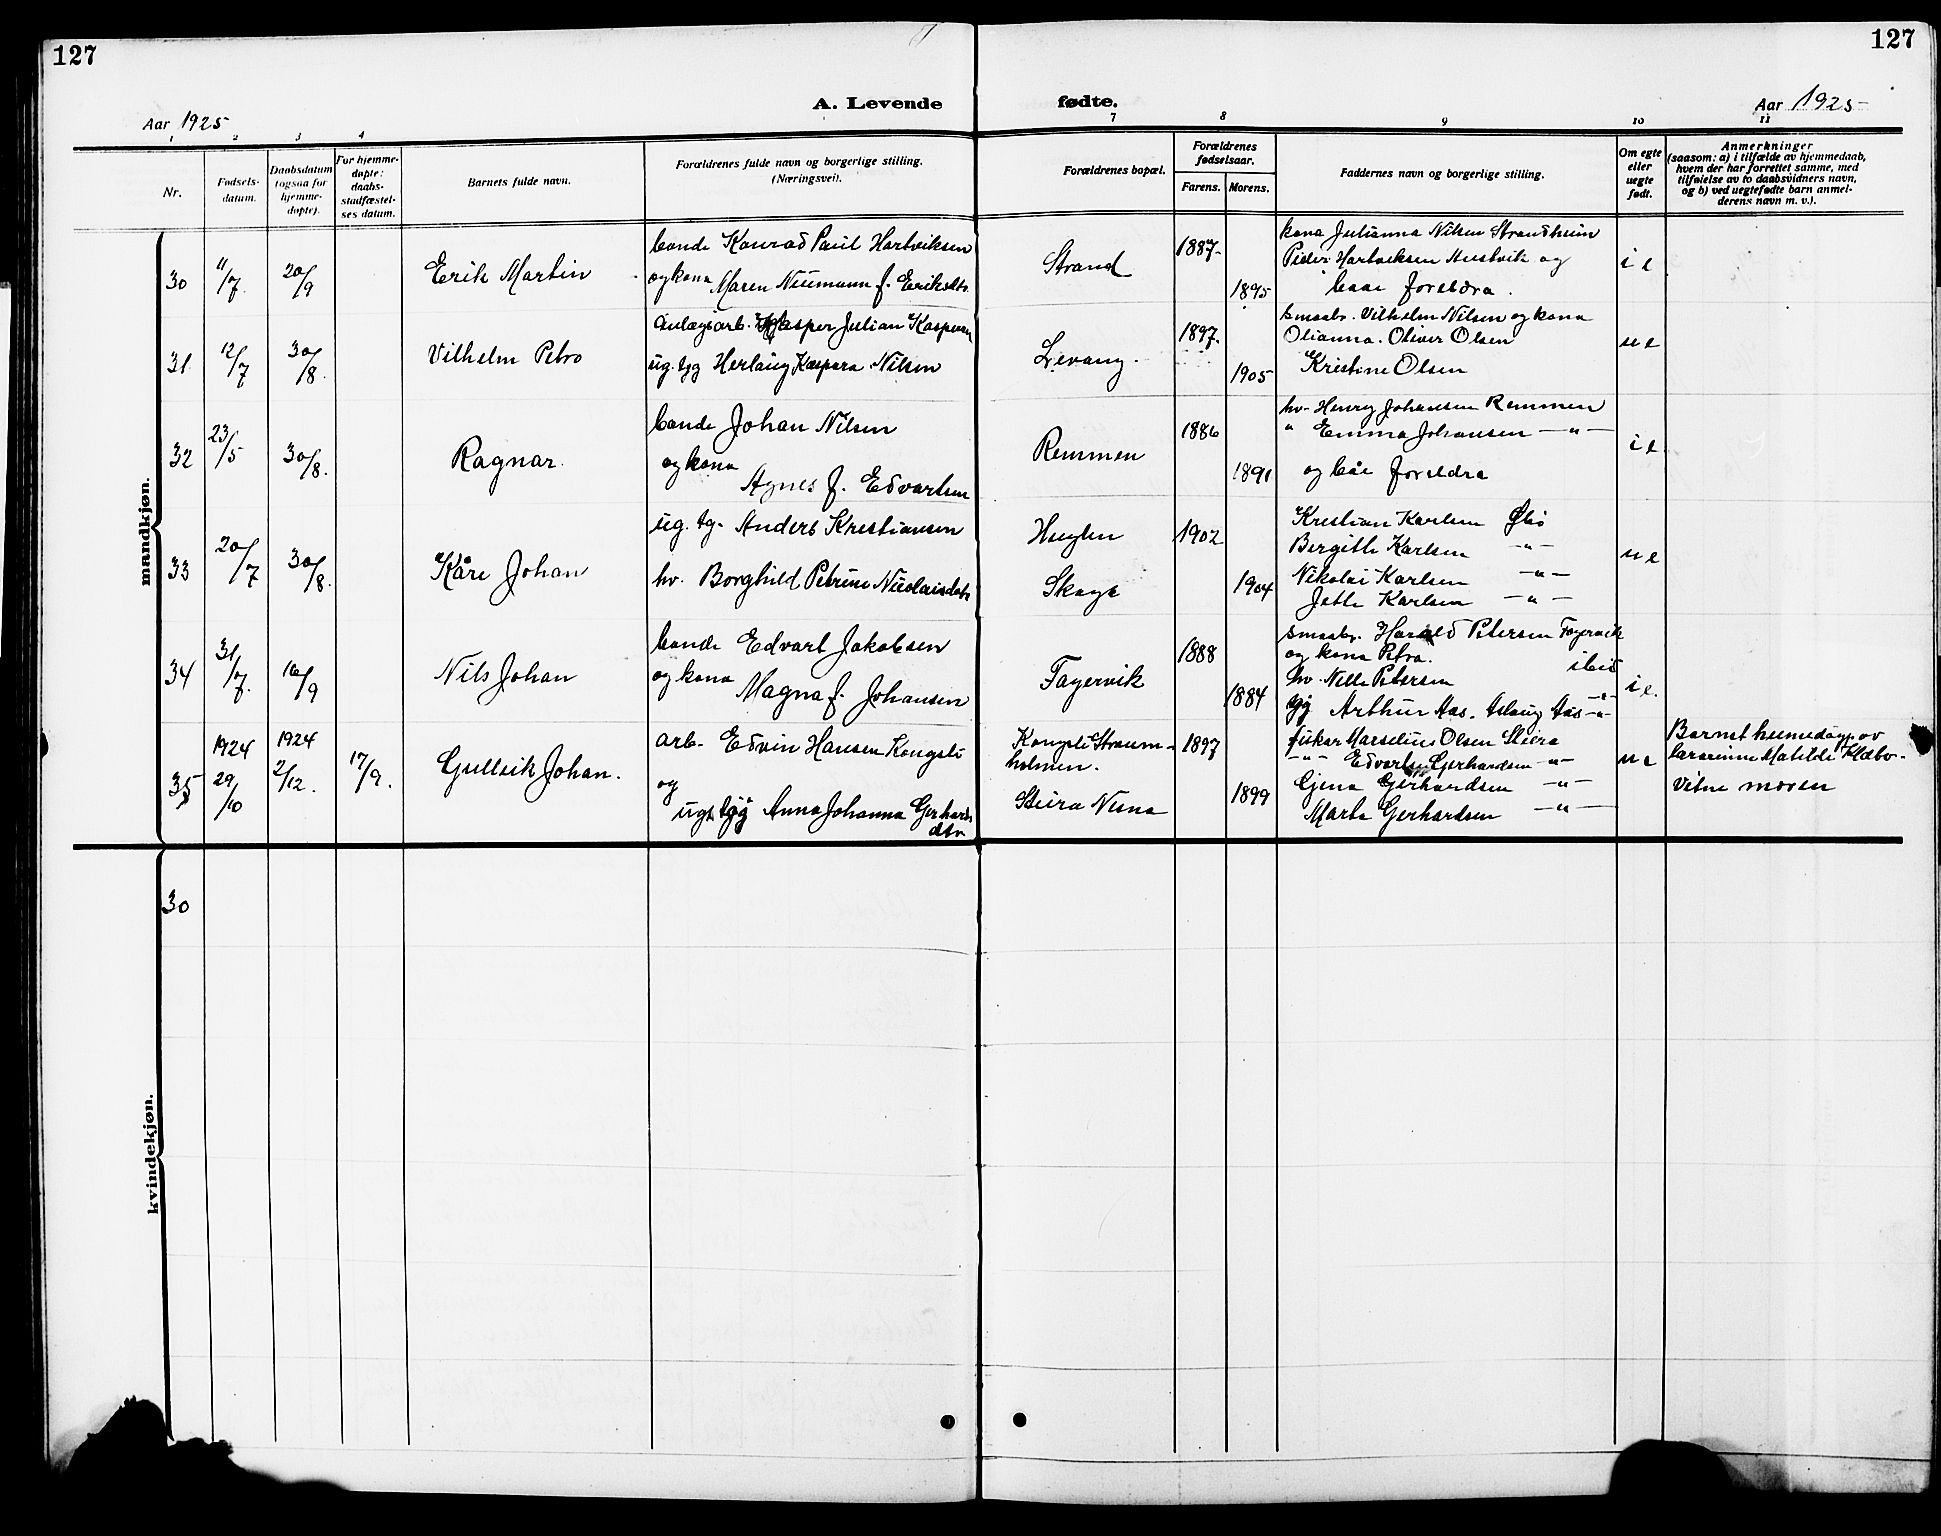 127
127
A. Levende
fødte.
Aar 1925
Aar 1925
1 2 3 4 7 8 9 10 11
Nr.
Fødsels-
datum.
Daabsdatum
(ogsaa for
hjemme-
døpte).
For hjemme-
døpte:
daabs-
stadfæstel-
ses datum.
Barnets fulde navn.
Forældrenes fulde navn og borgerlige stilling.
(Næringsvei).
Forældrenes bopæl.
Forældrenes
fødselsaar.
Farens. Morens.
Faddernes navn og borgerlige stilling.
Om egte
eller
uegte
født.
Anmerkninger
(saasom: a) i tilfælde av hjemmedaab,
hvem der har forrettet samme, med
tilføielse av to daabsvidners navn,
og b) ved uegtefødte barn anmel-
derens navn m. v.).
mandkjøn.
30
11/7.
20/9
Erik Martin
bonde Konrad Paul Hartviksen
og kona Maren Neumann f. Eriksdtr.
Strand
1887.
1895
kona Julianna Nilsen Strandheim
Peder Hartviksen Husvik og
baae foreldra.
i e
31
12/7
30/8.
Vilhelm Petro
anlægsarb. Kasper Julian Kaspersen
ug. tjg Herlaug Kaspara Nilsen
Levang.
1897.
1905
smaabr. Vilhelm Nilsen og kona
Olianna. Oliver Olsen
Kristine Olsen
u e
32
23/5
30/8.
Ragnar.
bonde Johan Nilsen
og kona
Agnes f. Edvartsen
Remmen
1886
1891
hv. Henry Johansen Remmen
" Emma Johansen — " —
og båe foreldra
i e
33
20/7
30/8.
Kåre Johan
ug. tg. Anders Kristiansen
hv. Borghild Petrine Nicolaisdatr
Huglen
Skaga
1902
1904
Kristian Karlsen Øbø
Bergitte Karlsen — " —
Nikolai Karlsen — " —
Jette Karlsen — " —
u e
34
31/7.
16/9
Nils Johan
bonde Edvart Jakobsen
og kona
Magna f. Johansen
Fagervik
1888
1884
smaabr. Harald Petersen Fagervik
og kona Petra.
hv. Nelle Petersen ibid
tjg Arthur Aas. Aslaug Aas — " —
i e.
35
1924
29/10
1924
2/12.
17/9.
Gullvik Johan.
arb. Edvin Hansen Kongsli
og
ugt tjg Anna Johanna Gerhards
dtr
Kongsli Straum-
holmen.
Steira Nesna
1897
1899
fisker Marselius Olsen Steira
— " — Edvartsen Gerhardsen — " —
Gjena Gerhardsen — " —
Marta Gerhardsen — " —
u e
Barnet heimedøpt av
lærarinne Matilde Klæbo.
Vitne moren
kvindekjøn.
30